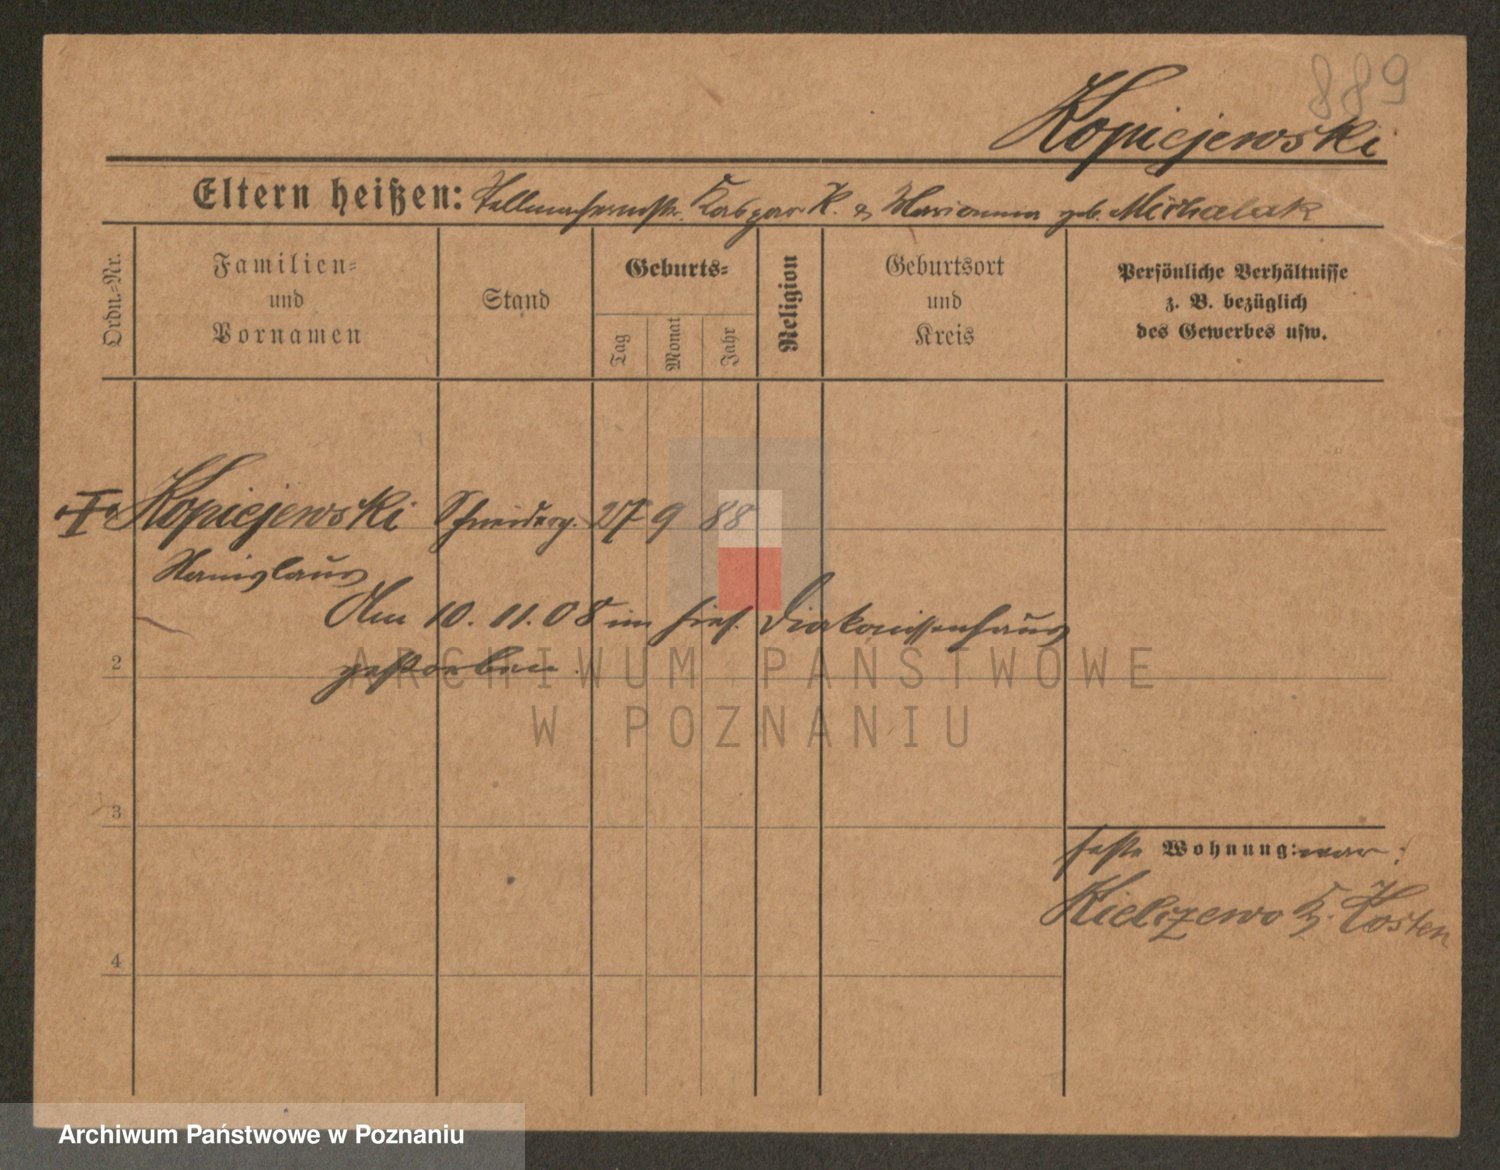 889
Kopiejewski
Eltern heißen: Stellmachermstr. Kaspar K. & Marianna geb. Michalak
Ordn.=Nr.
Familien=
und
Vornamen
Stand
Geburts=
Tag
Monat
Jahr
Religion
Geburtsort
und
Kreis
Persönliche Verhältnisse
z. B. bezüglich
des Gewerbes usw.
I Kopiejewski Schneiderg. 27 9 88
Stanislaus
Am 10.11.08 im hies. Diakonissenhaus
2
gestorben.
3
feste Wohnung: war:
Kielczewo K. Kosten
4
ARCHIWUM PAŃSTWOWE
W POZNANIU
Archiwum Państwowe w Poznaniu